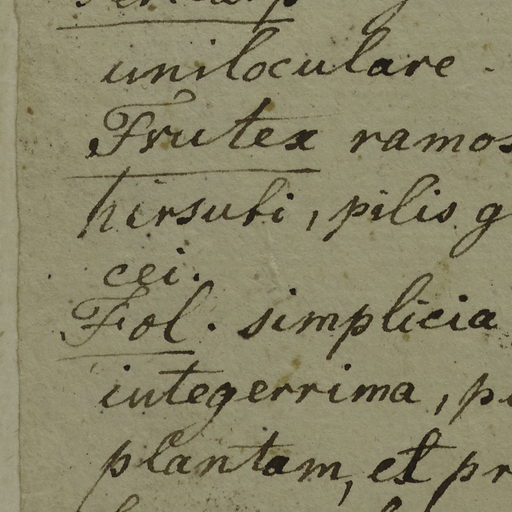 uniloculare -
Frutex ramos
hirsuti, pilis g
cei.
Fol. simplicia
integerrima, p
plantam, et pr